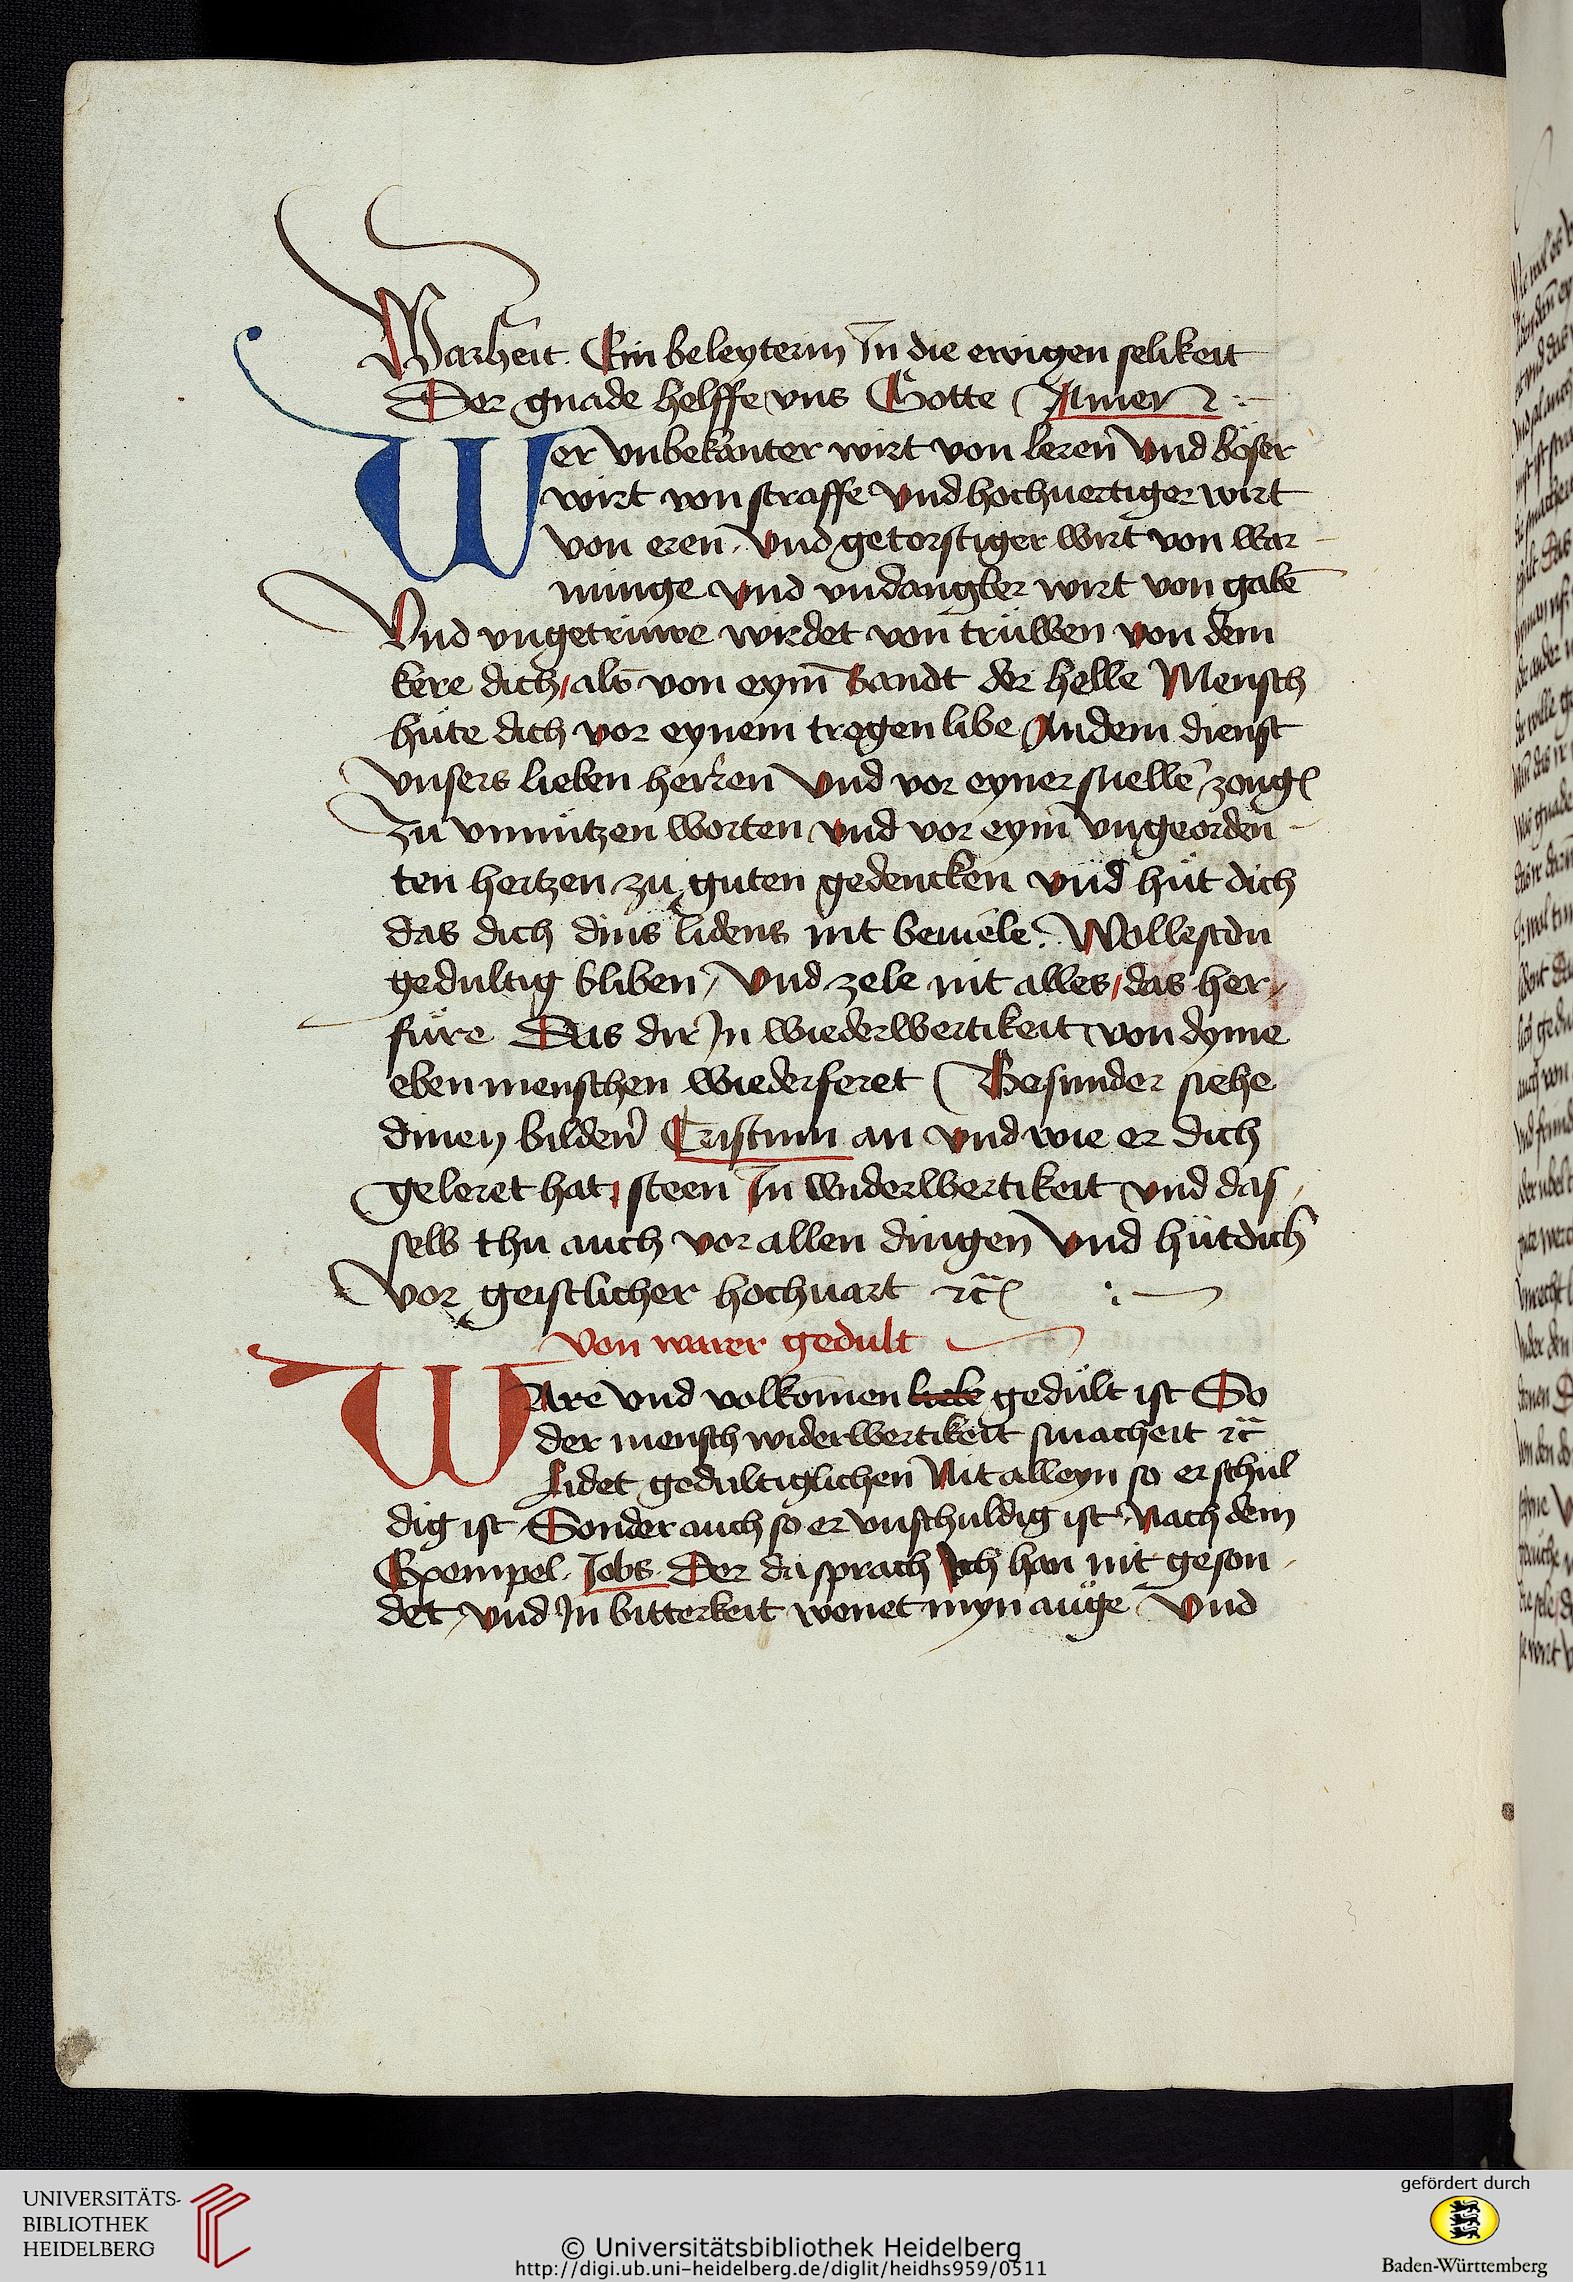 Warheit. Ein beleyterin In die ewigen selikeit
Der gnade helffe vns Gotte Amen
Wer vnbekanter wirt von leren vnd böser
wirt von straffe vnd hochuertiger wirt
von eren. vnd getorstiger wirt von war
nunge vnd vndangber wirt von gabē
Vnd vngetruwe wirdet von trüwen von dem
kere dich, als von eym̄ bandt der helle Mensch
hüte dich vor eynem tregen libe An dem dienst
vnsers lieben herren Vnd vor eyner snellē zong
zu vnnützen worten vnd vor eym̄ vngeorden
ten hertzen zu guten gedencken vnd hüt dich
das dich dins lidens nit beuele. Wollestdu
gedultig bliben, Vnd zele nit alles, das her
füre Das dir In wiederwertikeit von dyme
eben menschen wiederferet Besunder siehe
dinen bilder Cristum an vnd wie er dich
geleret hat, steen In widerwertikeit vnd das
selb thu auch vor allen dingen Vnd hüt dich
vor geistlicher hochuart ꝛc̄
von warer gedult
WAre vnd volkomen liebe gedült ist So
der mensch widerwertikeit smacheit ꝛc̄
lidet gedultiglichen Nit alleyn so er schul
dig ist Sonder auch so er vnschuldig ist Nach dem
Exempel. Jobs. Der da sprach Ich han nit geson
det vnd In bitterkeit wonet myn auge Vnd
UNIVERSITÄTS-
BIBLIOTHEK
HEIDELBERG
© Universitätsbibliothek Heidelberg
http://digi.ub.uni-heidelberg.de/diglit/heidhs959/0511
gefördert durch
Baden-Württemberg